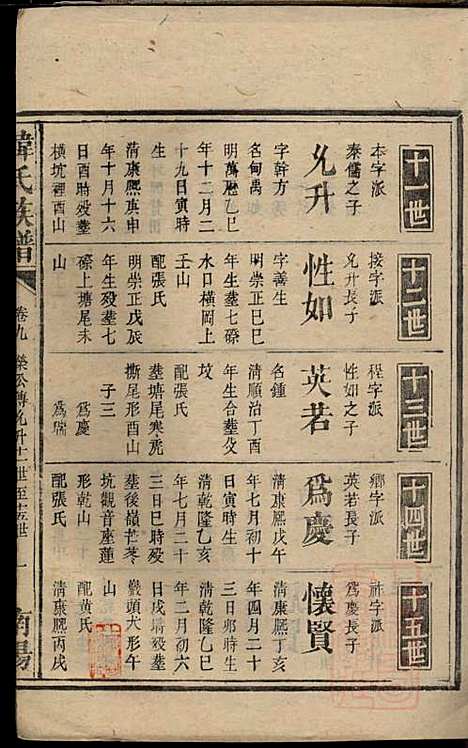 十一世
本字派
秦儒之子
允升
字幹方
名甸禹
明萬曆乙巳
年十二月二
十九日寅時
生
清康熙庚申
年十月十六
日酉時殁葬
橫坑裡酉山
十二世
接字派
允升長子
性如
字善生
明崇正己巳
年生葬七磜
水口橫岡上
壬山
配張氏
明崇正戊辰
年生殁葬七
磜上塘尾未
山
十三世
程字派
性如之子
英若
名鍾
清順治丁酉
年生合葬父
墳
配張氏
葬塘尾寒虎
擳尾形酉山
子三
爲慶
爲瑞
十四世
鄉字派
英若長子
爲慶
清康熙戊午
年七月初十
日寅時生
清乾隆乙亥
年七月二十
三日巳時殁
葬後嶺芒荖
坑觀音座蓮
形乾山
配張氏
十五世
爲慶長子
懷賢
清康熙丁亥
年四月二十
三日卯時生
清乾隆乙巳
年二月初六
日戌時殁葬
犬形午
山
配黄氏
清康熙丙戌
韓氏族譜
卷九
榮公傳允升十一世至十五世
一
南陽